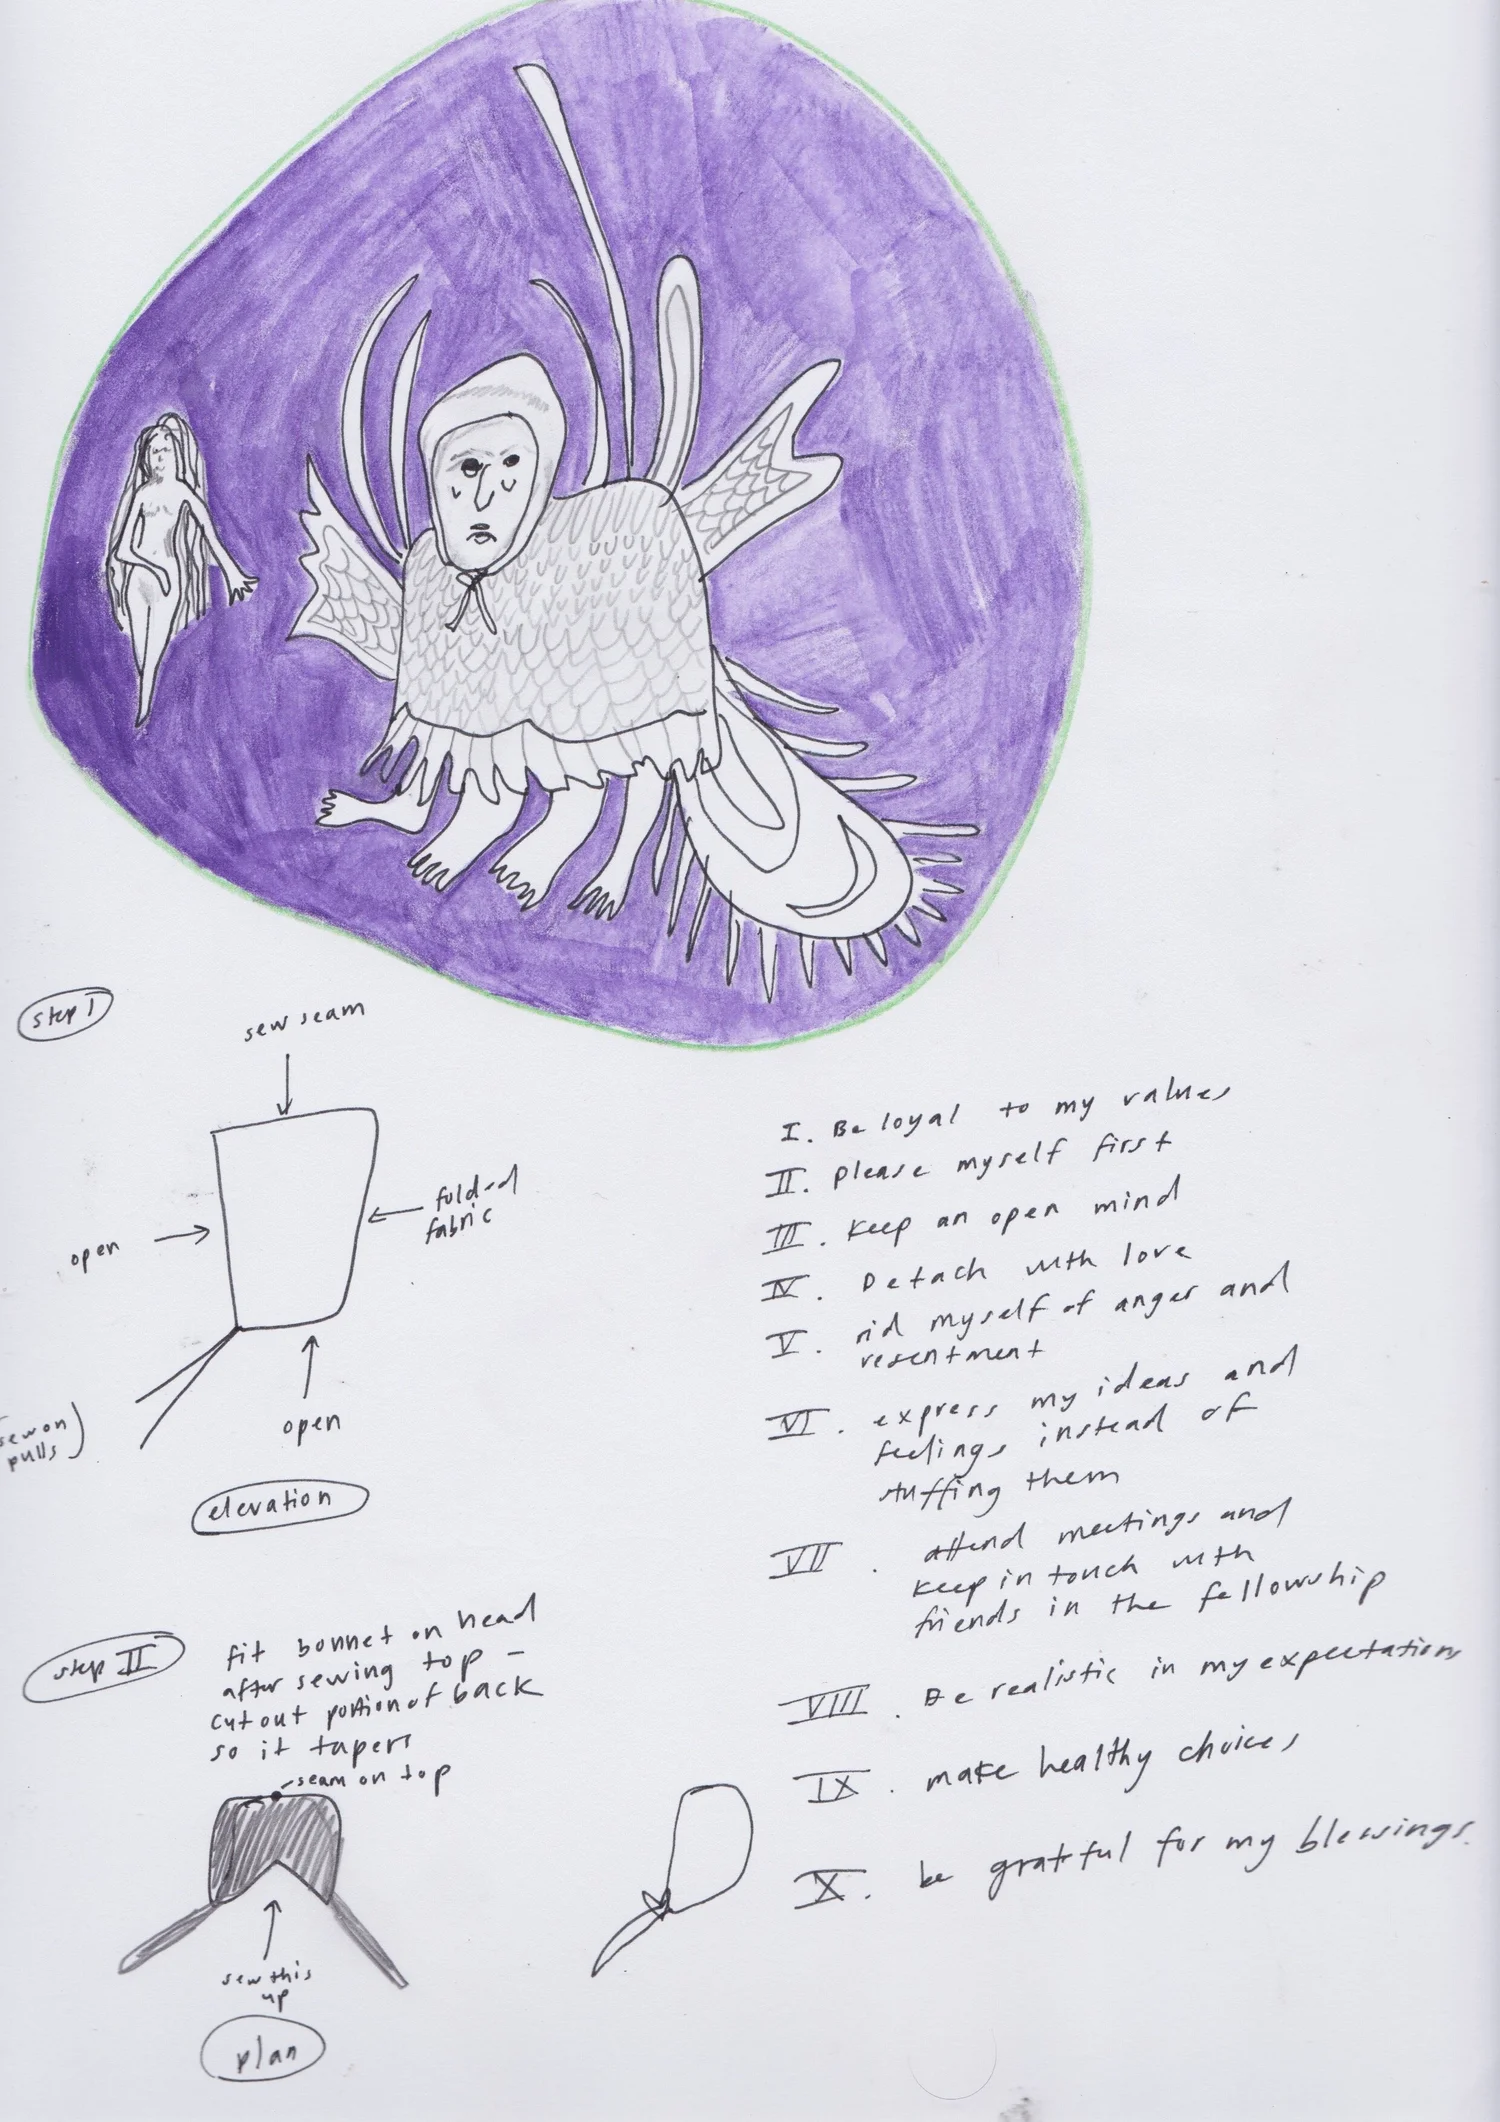 step I
sew seam
open
folded
fabric
sew on
pulls)
open
elevation
step II
fit bonnet on head
after sewing top -
cut out portion of back
so it tapers
seam on top
sew this
up
plan
I. Be loyal to my values
II. please myself first
III. Keep an open mind
IV. Detach with love
V. rid myself of anger and
resentment
VI. express my ideas and
feelings instead of
stuffing them
VII. attend meetings and
keep in touch with
friends in the fellowship
VIII. Be realistic in my expectations
IX. make healthy choices
X. be grateful for my blessings.